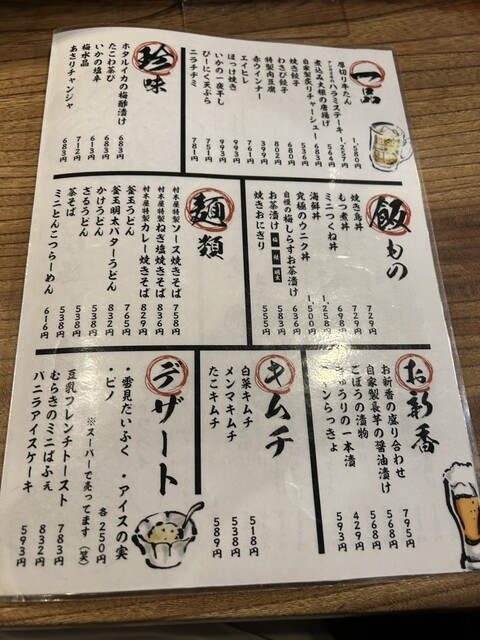 一品
厚切り牛たん 1,580円
アンガス牛のハラミステーキ 1,257円
煮込み大根の唐揚げ 564円
自家製炙りチャーシュー 683円
焼き餃子 536円
わさび餃子 680円
特製肉豆腐 802円
赤ウインナー 399円
エイヒレ 761円
ほっけ焼き 993円
いかの一夜干し 993円
ぴーにく天ぷら 751円
ニラチヂミ 781円
珍味
ホタルイカの梅酢漬け 683円
たこわ茶び 683円
いかの塩辛 613円
梅水晶 712円
あさりチャンジャ 683円
飯もの
焼き鳥丼 729円
もつ煮丼 729円
ミニつくね丼 698円
海鮮丼 1,258円
究極のウニク丼 1,500円
自慢の梅しらすお茶漬け 636円
お茶漬け 梅 鮭 明太 583円
焼きおにぎり 555円
麺類
村木屋特製ソース焼きそば 758円
村木屋特製ねぎ塩焼きそば 836円
村木屋特製カレー焼きそば 829円
釜玉うどん 765円
釜玉明太バターうどん 832円
かけうどん 538円
ざるうどん 538円
茶そば 538円
ミニとんこつらーめん 616円
お新香
お新香の盛り合わせ 795円
自家製長芋の醤油漬け 568円
ごぼうの漬物 568円
きゅうりの一本漬 429円
らっきょ 593円
キムチ
白菜キムチ 518円
メンマキムチ 538円
たこキムチ 589円
デザート
・雪見だいふく ・アイスの実
・ピノ 各250円
※スーパーで売ってます(笑)
豆乳フレンチトースト 783円
むらきのミニぱふぇ 832円
バニラアイスケーキ 593円